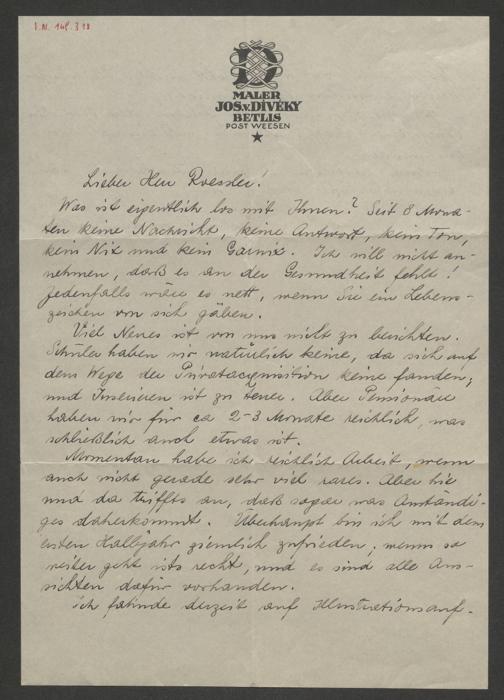 I.N. 148.318
D
MALER
JOS.v.DIVÉKY
BETLIS
POST WEESEN
Lieber Herr Roessler!
Was ist eigentlich los mit Ihnen? Seit 8 Mona-
ten keine Nachricht, keine Antwort, kein Ton,
kein Nix und kein Garnix. Ich will nicht an-
nehmen, daß es an der Gesundheit fehlt!
Jedenfalls wäre es nett, wenn Sie ein Lebens-
zeichen von sich gäben.
Viel Neues ist von uns nicht zu berichten.
Schüler haben wir natürlich keine, da sich auf
dem Wege der Privatacquisition keine fanden,
und Inserieren ist zu teuer. Aber Pensionäre
haben wir für ca 2-3 Monate reichlich, was
schließlich auch etwas ist.
Momentan habe ich reichlich Arbeit, wenn
auch nicht gerade sehr viel rares. Aber hie
und da triffts an, daß sogar was Anständi-
ges daherkommt. Überhaupt bin ich mit dem
ersten Halbjahr ziemlich zufrieden, wenns so
weiter geht ists recht, und es sind alle Aus-
sichten dafür vorhanden.
Ich fahnde derzeit auf Illustrationsauf-